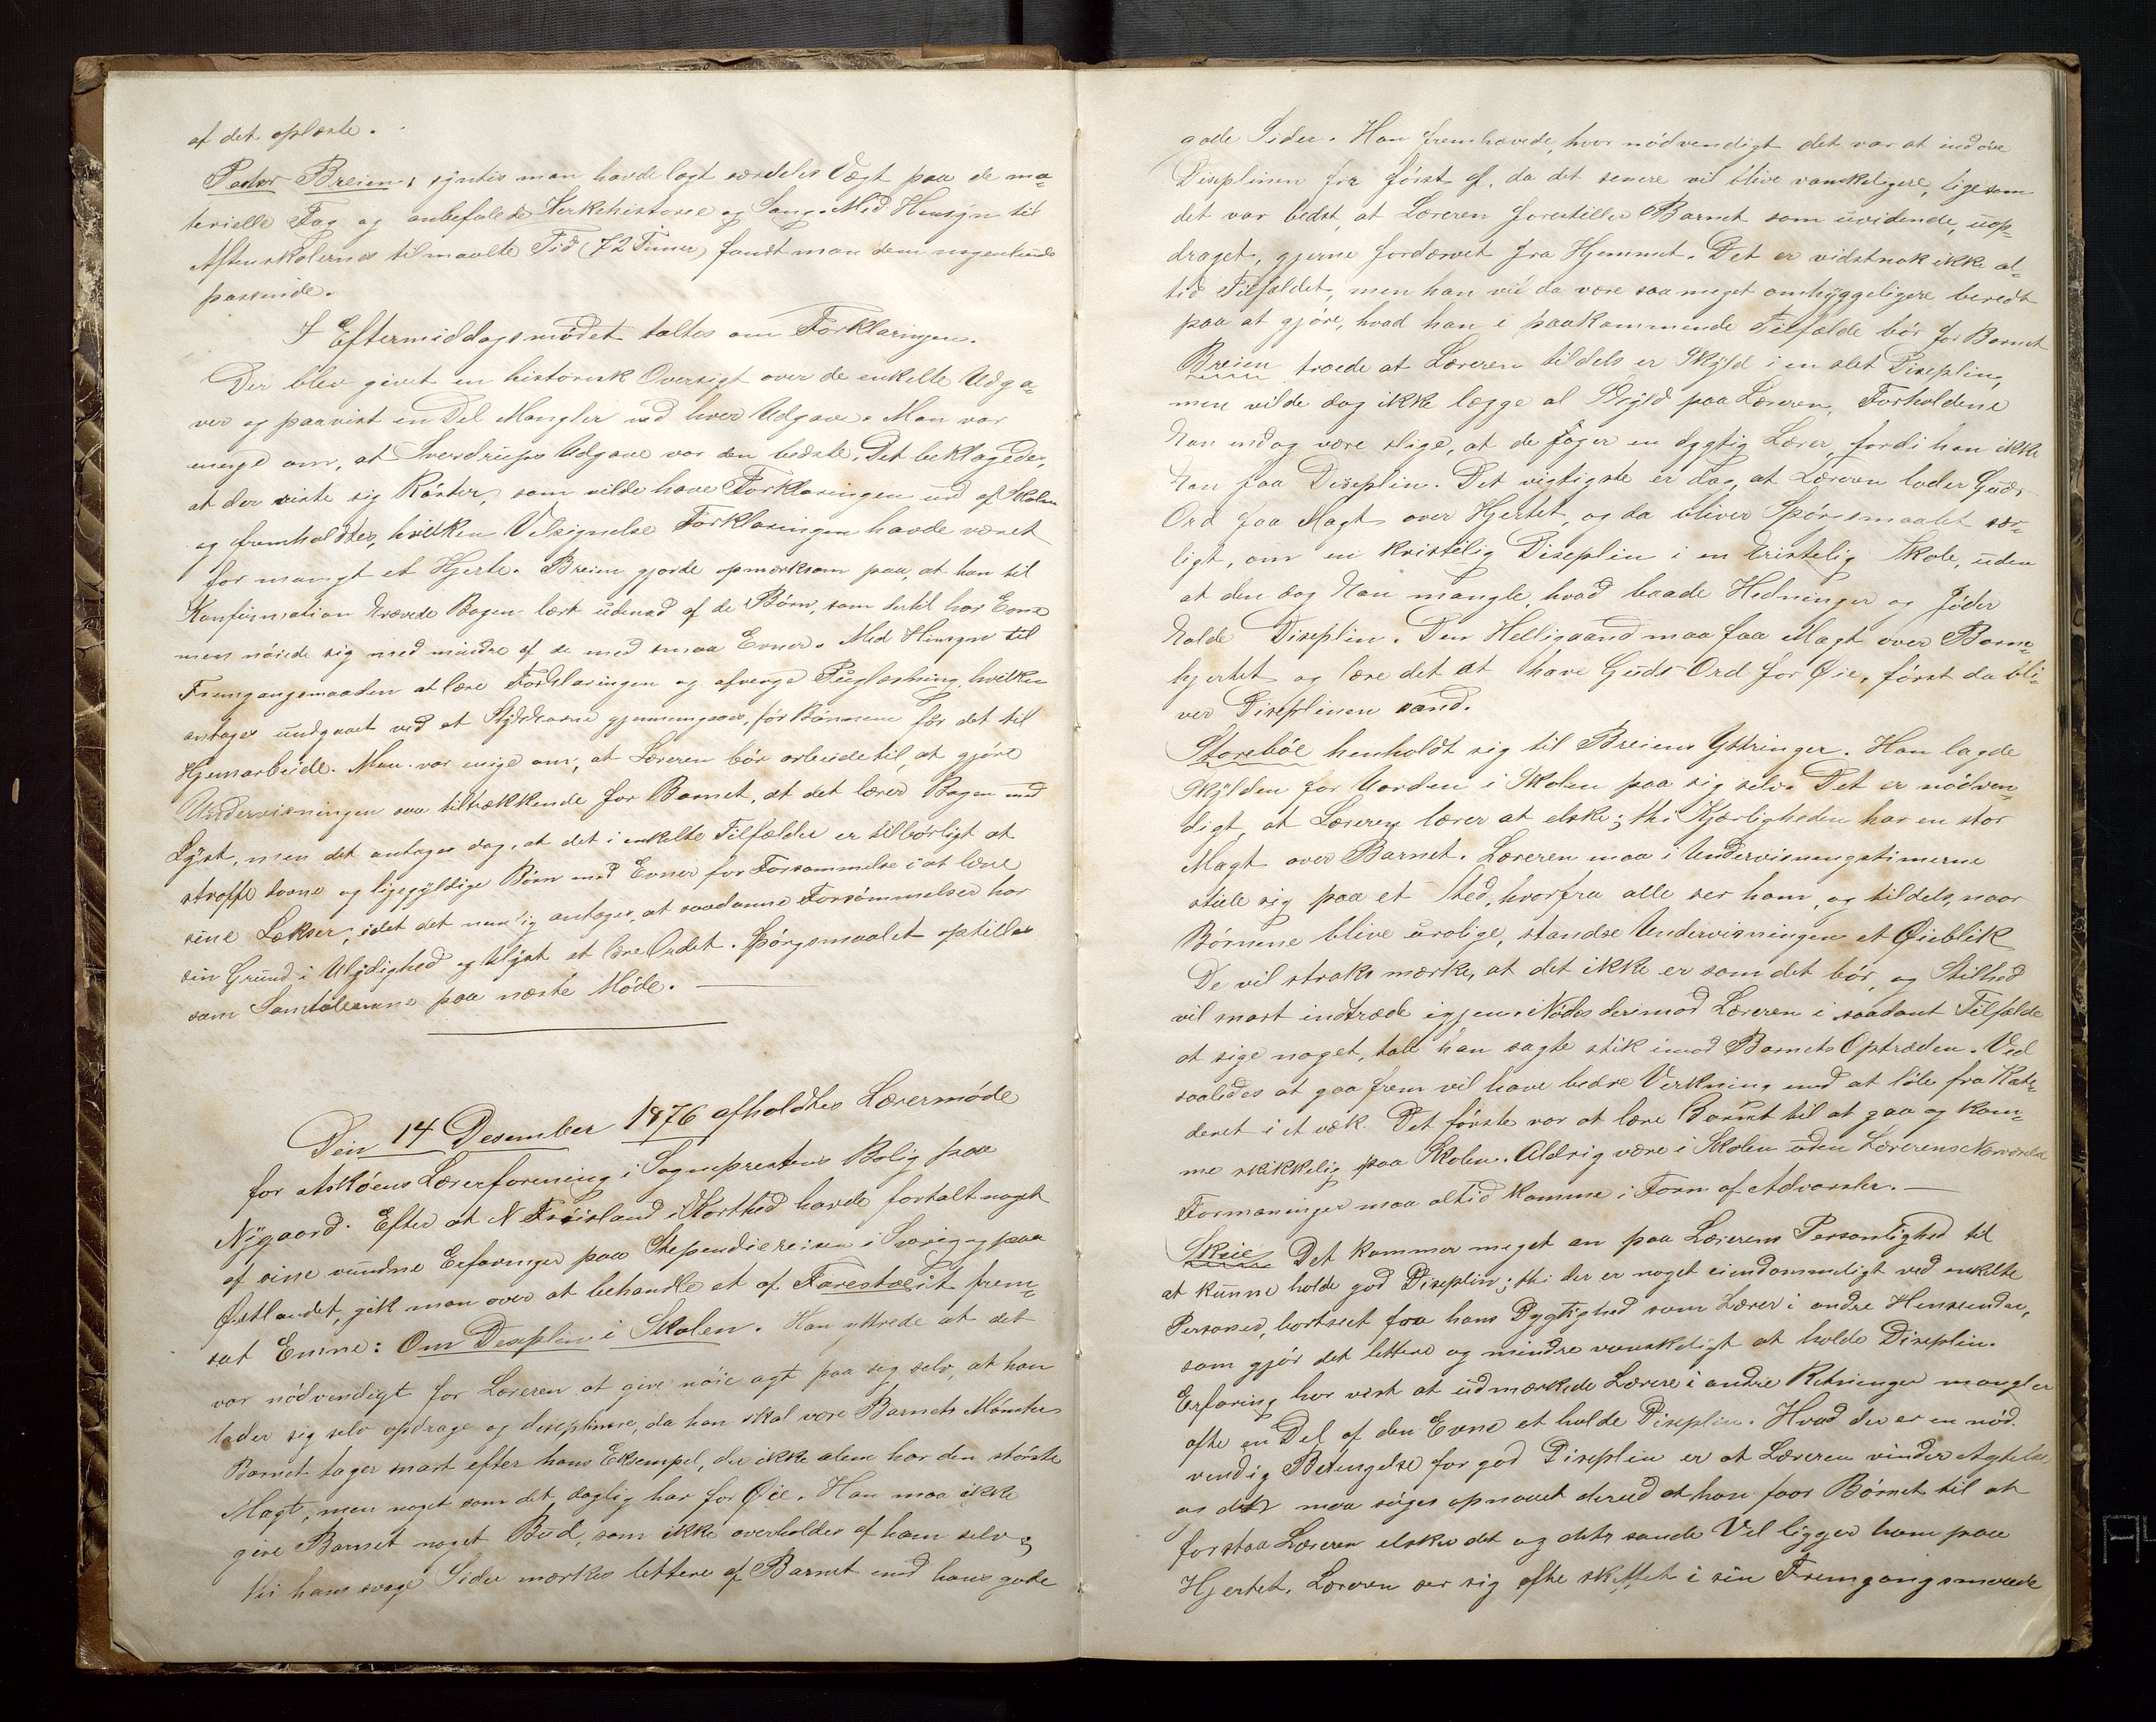 af det oplæste.
Pastor Breien; syntes man havde lagt særdeles Vægt paa de ma-
terielle Fag og anbefalede Kirkehistorie og Sang. Med Hensyn til
Aftenskolernes tilmaalte Tid (72 Timer) fandt man dem nogenlunde
passende.
I Eftermiddagsmødet taltes om Forklaringen.
Der blev givet en historisk Oversigt over de enkelte Udga-
ver og paavist en Del Mangler ved hver Udgave. Man var
enige om, at Sverdrups Udgave var den bedste. Det beklagedes,
at der reiste sig Røster, som vilde have Forklaringen ud af Skolen
og fremholdtes, hvilken Velsignelse Forklaringen havde været
for mangt et Hjerte. Breien gjorde opmærksom paa, at han til
Konfirmation krævede Bogen lært udenad af de Børn, som dertil har Evne
men nøiede sig med mindre af de med smaa Evner. Med Hensyn til
Fremgangsmaaden at lære Forklaringen og afverge Puglæsning, hvilken
antages undgaaet ved at Stykkerne gjennemgaaes, før Børnene får det til
Hjemarbeide. Man var enige om, at Læreren bør arbeide til, at gjøre
Undervisningen saa tiltrækkende for Barnet, at det lærer Bogen med
Lyst, men det antages dog, at det i enkelte Tilfælder er tilbørligt at
straffe dovne og ligegyldige Børn med Evner for Forsømmelse i at lære
sine Lækser, idet det nemlig antages, at saadanne Forsømmelser har
sin Grund i Ulydighed og Ulyst at lære Ordet. Spørgsmaalet opstilles
som Samtaleemne paa næste Møde. —
Den 14 Desember 1876 afholdtes Lærermøde
for Askøens Lærerforening i Sogneprestens Bolig paa
Nygaard. Efter at N Frøisland i Korthed havde fortalt noget
af sine vundne Erfaringer paa Stipendiereisen i Sverig og paa
Østlandet, gik man over at behandle et af Farestveit frem-
sat Emne: Om Deseplin i Skolen. Han yttrede at det
var nødvendigt for Læreren at give nøie agt paa sig selv, at han
lader sig selv opdrage og deseplinere, da han skal være Barnets Mønster
Barnet tager snart efter hans Eksempel, der ikke alene har den største
Magt, men noget som det daglig har for Øie. Han maa ikke
give Barnet noget Bud, som ikke overholdes af ham selv;
thi hans svage Sider mærkes lettere af Barnet end hans gode
gode Sider. Han fremhævede, hvor nødvendigt det var at indøve
Diseplinen fra først af, da det senere vil blive vanskeligere, ligesom
det var bedst, at Læreren forestiller Barnet som uvidende, uop-
draget, gjerne fordærvet fra Hjemmet. Det er vidstnok ikke al-
tid Tilfældet, men han vil da være saa meget omhyggeligere beredt
paa at gjøre, hvad han i paakommende Tilfælde bør for Barnet
Breien troede at Læreren tildels er Skyld i en slet Diseplin,
men vilde dog ikke lægge al Skyld paa Læreren, Forholdene
kan endog være slige, at de jager en dygtig Lærer, fordi han ikke
kan faa Diseplin. Det vigtigste er dog, at Læreren lader Guds
Ord faa Magt over Hjertet, og da bliver Spørgsmaalet sær-
ligt, om en kristelig Diseplin i en kristelig Skole, uden
at den dog kan mangle, hvad baade Hedninger og Jøder
kalde Diseplin. Den Helligaand maa faa Magt over Barne-
hjertet og lære det at have Guds Ord for Øie, først da bli-
ver Diseplinen sand.
Storebøe henholdt sig til Breiens Yttringer. Han lagde
Skylden for Uorden i Skolen paa sig selv. Det er nødven-
digt, at Læreren lærer at elske; thi Kjærligheden har en stor
Magt over Barnet. Læreren maa i Undervisningstimerne
stille sig paa et Sted, hvorfra alle ser ham, og tildels, naar
Børnene blive urolige, standse Undervisningen et Øieblik
De vil straks mærke, at det ikke er som det bør, og Stilhed
vil snart indtræde igjen. Nødes derimod Læreren i saadant Tilfælde
at sige noget, tale han sagte stik imod Barnets Optræden. Ved
saaledes at gaa frem vil have bedre Virkning end at løbe fra Kate-
deret i et væk. Det første var at lære Barnet til at gaa og kom-
me skikkelig paa Skolen. Aldrig være i Skolen uden Lærerens Nærværelse
Formaninger maa altid komme i Form af Advarsler. —
Skeie Det kommer meget an paa Lærerens Personlighed til
at kunne holde god Diseplin; thi der er noget eiendommeligt ved enkelte
Personer, bortseet fra hans Dygtighed som Lærer i andre Henseender,
som gjør det lettere og mindre vanskeligt at holde Diseplin.
Erfaring har vist at udmærkede Lærere i andre Retninger mangler
ofte en Del af den Evne at holde Diseplin. Hvad der er en nød-
vendig Betingelse for god Diseplin er at Læreren vinder Agtelse,
og den maa søges opnaaet derved at han faar Børnet til at
forstaa Læreren elsker det og dets sande Vel ligger ham paa
Hjertet. Læreren ser sig ofte skuffet i sin Fremgangsmaade